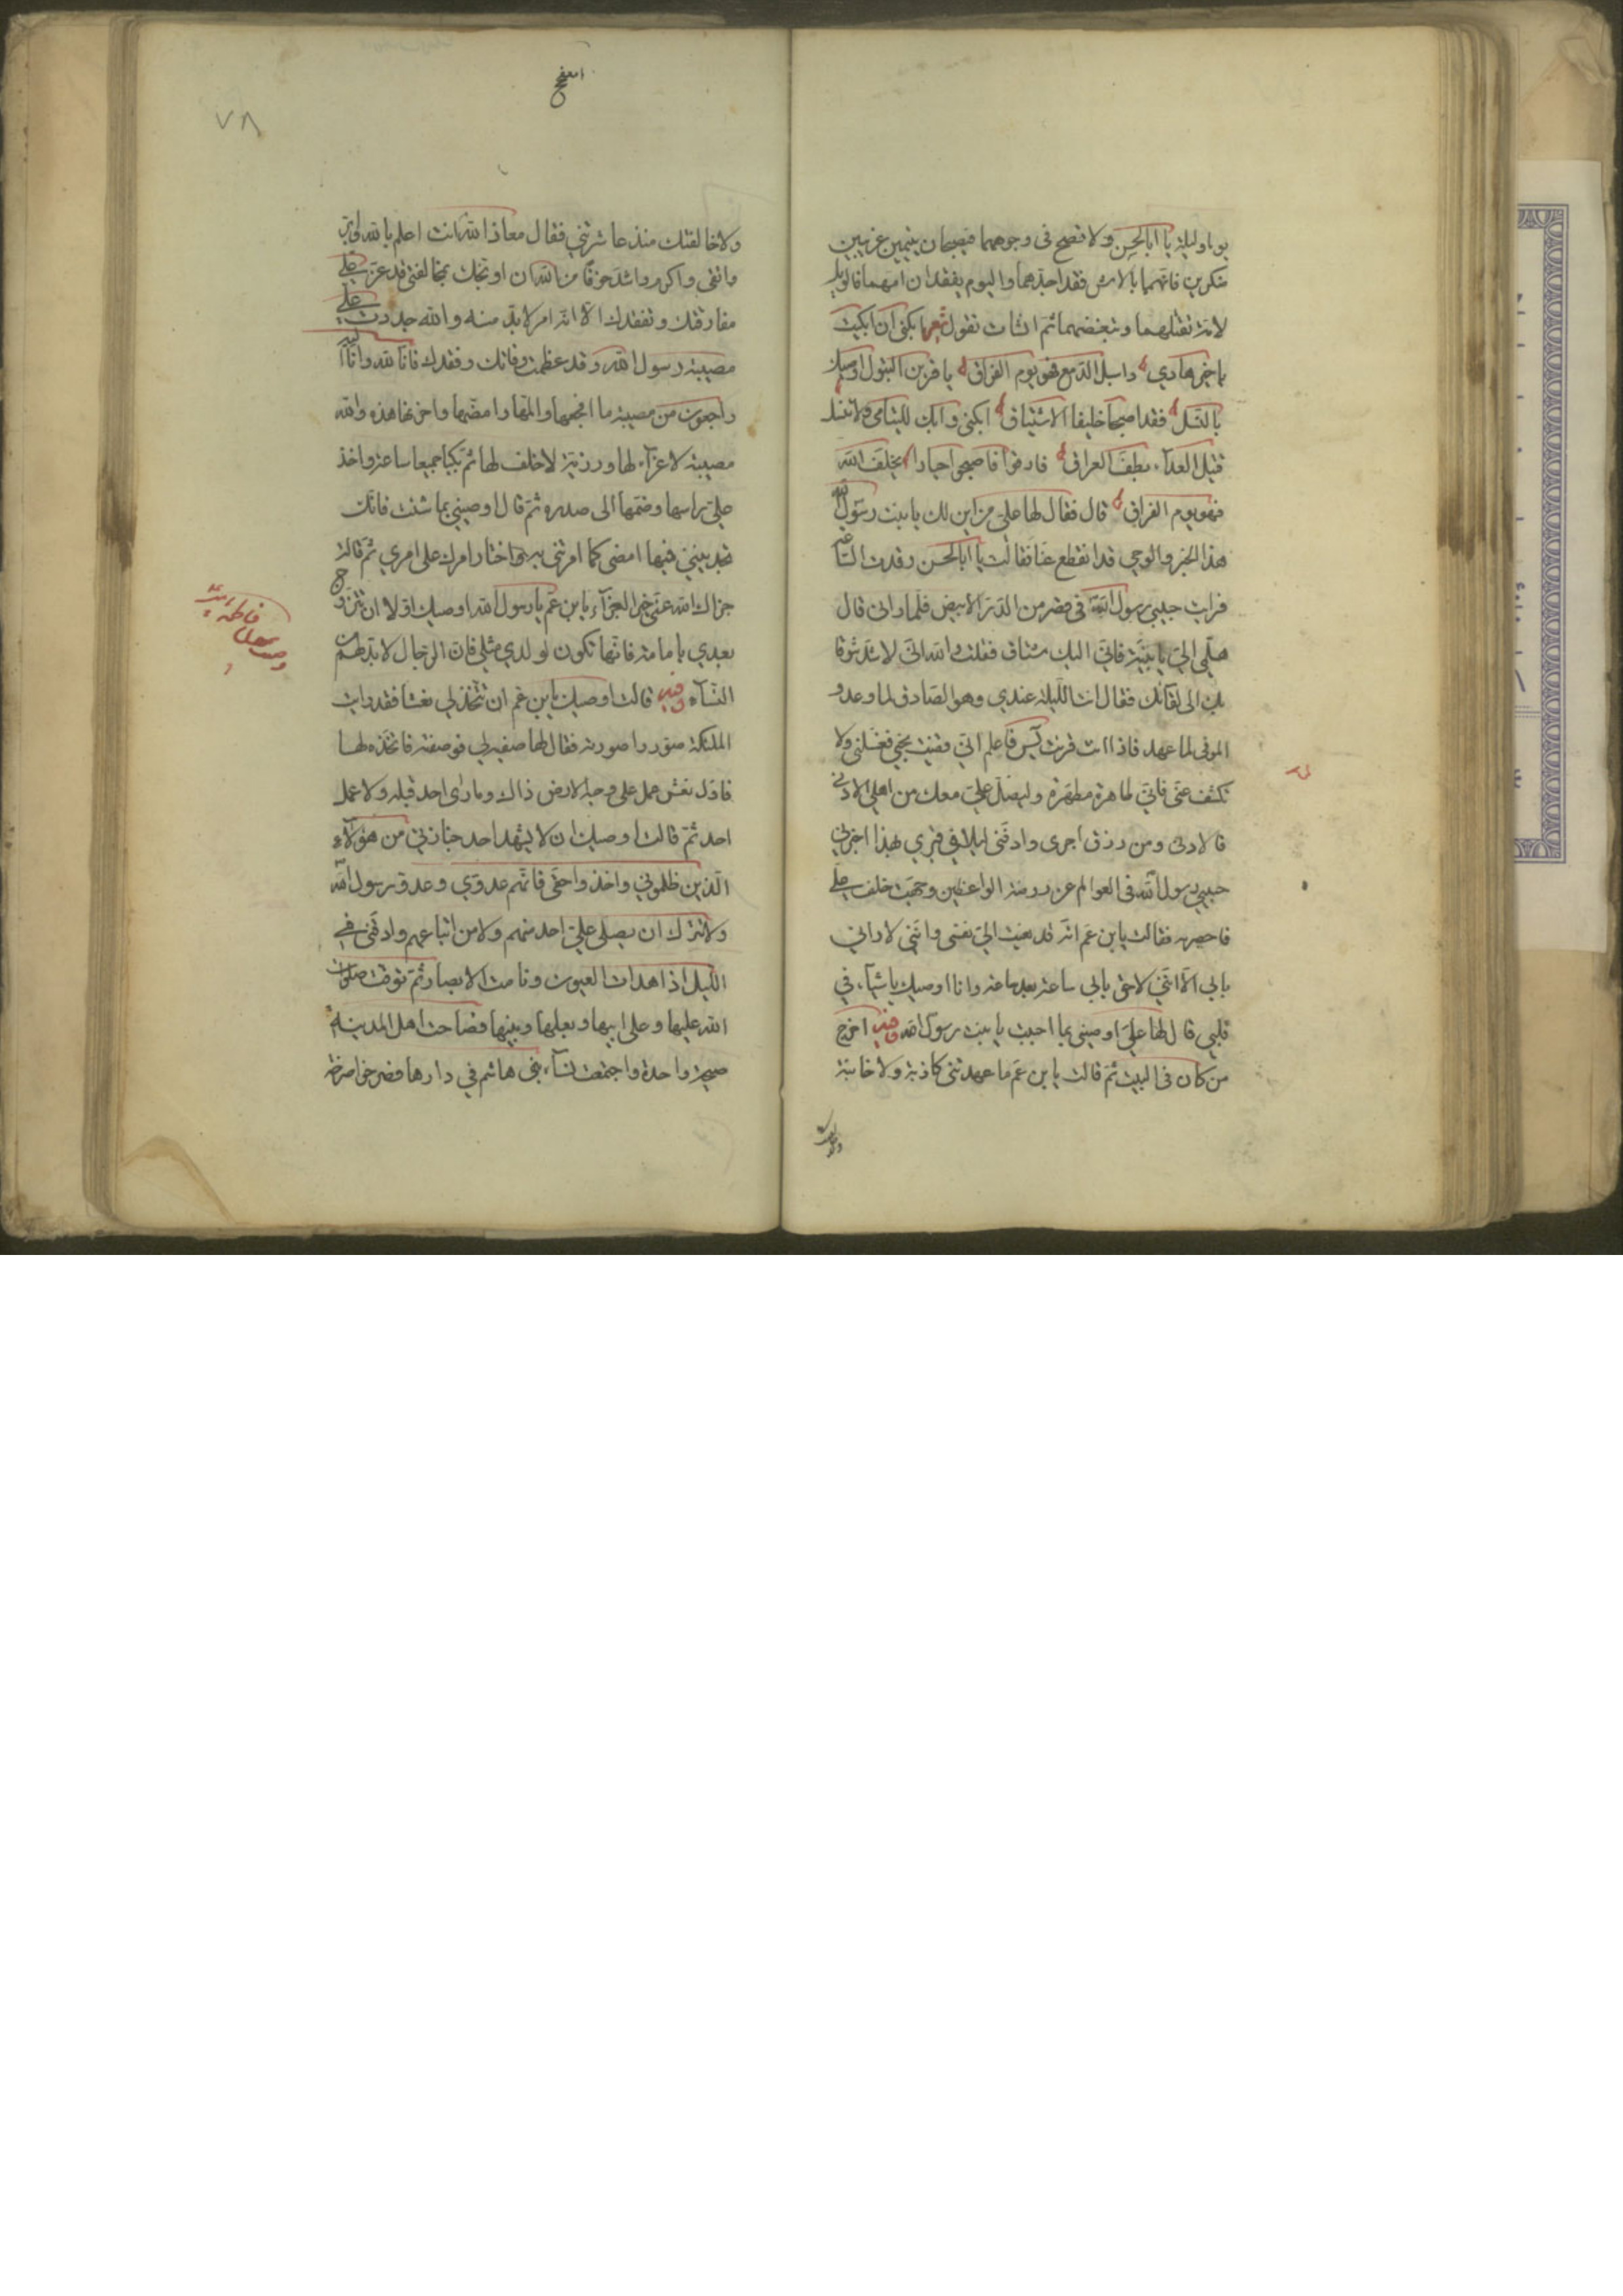 يوما وليلة يا ابا الحسن ولا تصح في وجوههما فيصبحان يتيمين غريبين
منكسرين فانهما بالامس فقدا جدهما واليوم يفقدان امهما فالويل
لامة تقتلهما وتبغضهما ثم انشات تقول شعرا ابكني ان بكيت
يا خير هادي واسبل الدمع فهو يوم الفراق يا قرين البتول اوصيك
بالنسل فقد اصبحا حليفا الاشتياق ابكني وابك لليتامى ولا تنس
قتيل العدآء بطف العراق فارقوا فاصبحوا حيارا يخلف الله
فهو يوم الفراق قال فقال لها علي من اين لك يا بنت رسول الله
هذا الخبر والوحي قد انقطع عنا فقالت يا ابا الحسن رقدت الساعة
فرايت حبيبي رسول الله في قصر من الدر الابيض فلما راني قال
هلمي الي يا بنية فاني اليك مشتاق فقلت والله اني لاشد شوقا
منك الى لقآئك فقال انت الليلة عندي وهو الصادق لما وعد و
الموفي لما عهد فاذا انت قرئت يس فاعلم اني قضيت نحبي فغسلني ولا
تكشف عني فاني طاهرة مطهرة وليصل علي معك من اهلي الادنى
فالادنى ومن رزق اجرى وادفني ليلا في قبري بهذا اخبرني
حبيبي رسول الله في العوالم عن روضة الواعظين وجهت خلف علي
فاحضرته فقالت يا بن عم انه قد نعيت الي نفسي وانني لا ارى
ما بي الا انني لاحق بابي ساعة بعد ساعة وانا اوصيك باشيآء في
قلبي قال لها علي اوصيني بما احببت يا بنت رسول الله اخرج
من كان في البيت ثم قالت يا بن عم ما عهدتني كاذبة ولا خائنة
٧٨
ولا خالفتك منذ عاشرتني فقال معاذ الله انت اعلم بالله وابر
واتقى واكرم واشد خوفا من الله ان اوبخك بمخالفتي قد عز علي
مفارقتك وتفقدك الا انه امر لا بد منه والله جددت علي
مصيبة رسول الله وقد عظمت وفاتك وفقدك فانا لله وانا اليه
راجعون من مصيبة ما افجعها والمها وامضها واحزنها هذه والله
مصيبة لا عزآء لها ورزية لا خلف لها ثم بكيا جميعا ساعة واخذ
علي راسها وضمها الى صدره ثم قال اوصيني بما شئت فانك
تجديني فيها امضي كما امرتني به واختار امرك على امري ثم قالت
جزاك الله عني خير الجزآء يا بن عم يا رسول الله اوصيك اولا ان تتزوج
بعدي بامامة فانها تكون لولدي مثلي فان الرجال لا بد لهم من
النسآء قالت اوصيك يا بن عم ان تتخذ لي نعشا فقد رايت
الملئكة صوروا صورته فقال لها صفيه لي فوصفته فاتخذه لها
فاول نعش عمل على وجه الارض ذاك وما راى احد قبله ولا عمل
احد ثم قالت اوصيك ان لا يشهد احد جنازتي من هؤلآء
الذين ظلموني واخذوا حقي فانهم عدوي وعدو رسول الله
ولا تترك ان يصلي علي احد منهم ولا من اتباعهم وادفني في
الليل اذا هدات العيون ونامت الابصار ثم توفت صلوات
الله عليها وعلى ابيها وبعلها وبنيها فصاحت اهل المدينة
صيحة واحدة واجتمعت نسآء بني هاشم في دارها فصرخوا صرخة